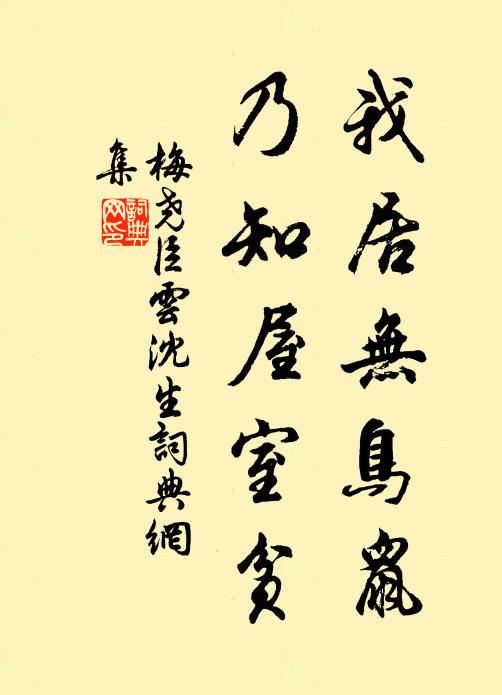 我居無鳥鼠
乃知屋室貧
梅尭臣雲沈生詞典網
集
詞典网印